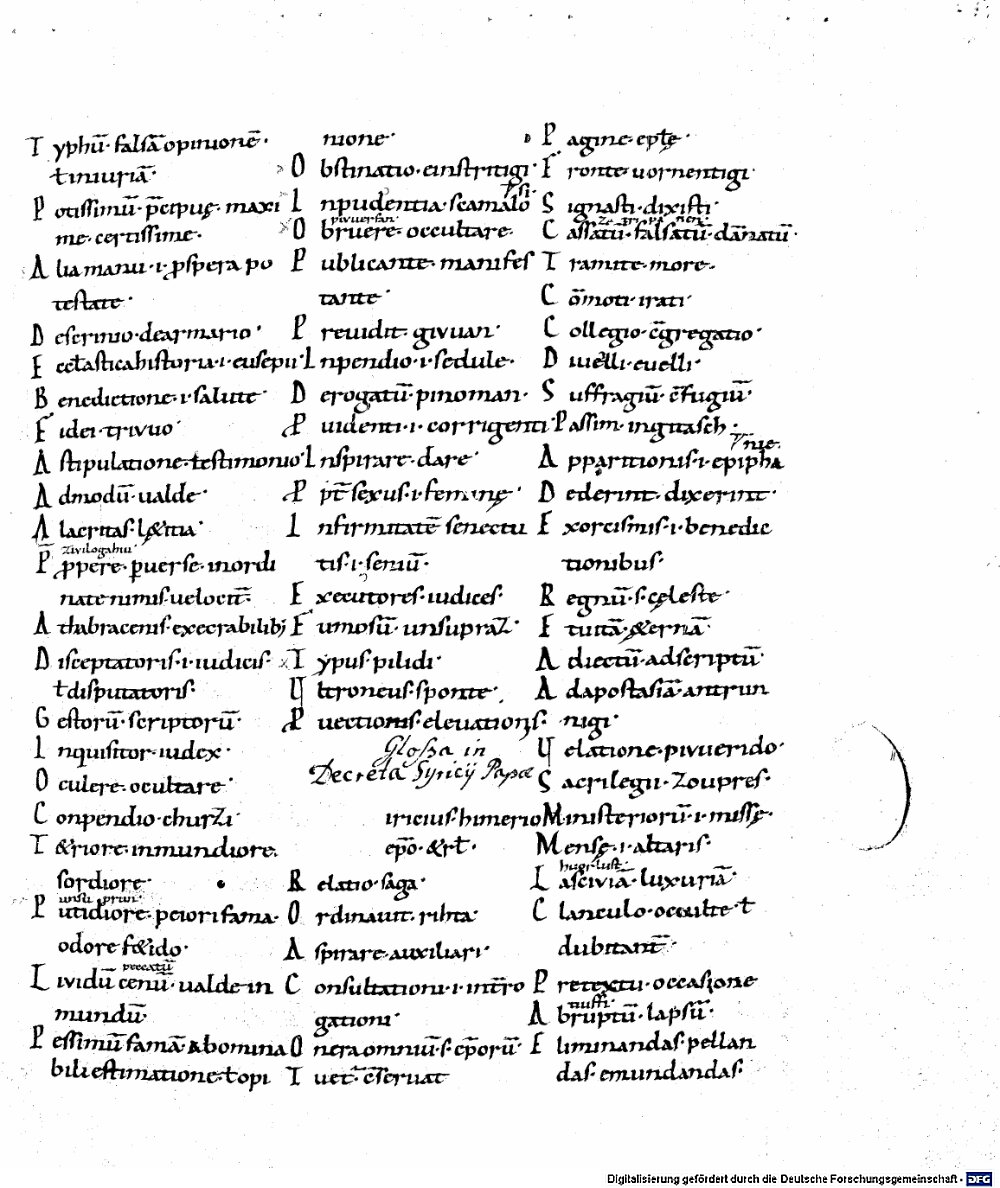 Typhū· falsā opinionē·
t iniuriā·
Potissimū· p̄cipuę· maxi
me· certissime·
Alia manu·i· ꝓspera po
testate·
Descrinio· dearmario·
Eccl̄astica historia·i· eusepii
Benedictione·i· salute·
Fidei· trivuo·
Astipulatione· testimonio·
Admodū· ualde·
Alacritas· l&itia·
zivilogahiu
P̄ꝓpere· ꝑuerse· inordi
nate nimis uelocit̄·
Athbracenis· execrabilibꝫ
Disceptatoris·i· iudicis·
t disputatoris·
Gestorū· scriptorū·
Inquisitor· iudex·
Oculere· ocultare·
Conpendio· churzi·
T&riore· inmundiore·
sordiore·
Putidiore· peiori fama·
odore f&ido·
peccatū
Lividū cenū· ualde in
mundū·
Pessimū famā abomina
bili estimatione· t opi
nione·
Obstinatio· einstritigi·
Inpudentia· scamalo
piuuersan
Obruere· occultare·
Publicante· manifes
tante·
Preuidit· givuan·
Inpendio·i· sedule·
Derogatū· pinoman·
Puidenti·i· corrigenti
Inspirare· dare·
Pp̄t sexus·i· feminę·
Infirmitatē senectu
tis·i· seniū·
Executores· iudices·
Fumosū· unsupraz·
Typus· pilidi·
Ultroneus· sponte·
Puectionis· eleuationis·
Glossa in
Decreta Syricij Papæ
iricius himerio
ep̄o· &rł·
Relatio· saga·
Ordinauit· rihta·
Aspirare· auxiliari·
Consultationi·i· int̄ro
gationi·
Onera omniū·s· ep̄orū·
Tuet̄· c̄seruat
Pagine· epl̄e·
Fronte· uornentigi·
Signasti· dixisti·
Cassatū· falsatū· dānatū·
Tramite· more·
Cōmoti· irati·
Collegio· c̄gregatio·
Diuelli· euelli·
Suffragiū· c̄fugiū·
Passim· ingitasch·
Apparitionis·i· epipha
nie·
Dederint· dixerint·
Exorcismis·i· benedic
tionibus·
Regnū·s· cęleste·
Etuitā· &ernā·
Adiectū· adscriptū·
Adapostasiā· antrun
nigi·
Uelatione· pivuerido·
Sacrilegii· zoupres·
Ministeriorū·i· missę·
Mensę·i· altaris·
hugi·lust·
Lasciviā· luxuriā·
Clanculo· occulte t
dubitant̄·
Pretextu· occasione
nuffi·
Abruptū· lapsū·
Eliminandas· pellan
das· emundandas·
Digitalisierung gefördert durch die Deutsche Forschungsgemeinschaft · DFG